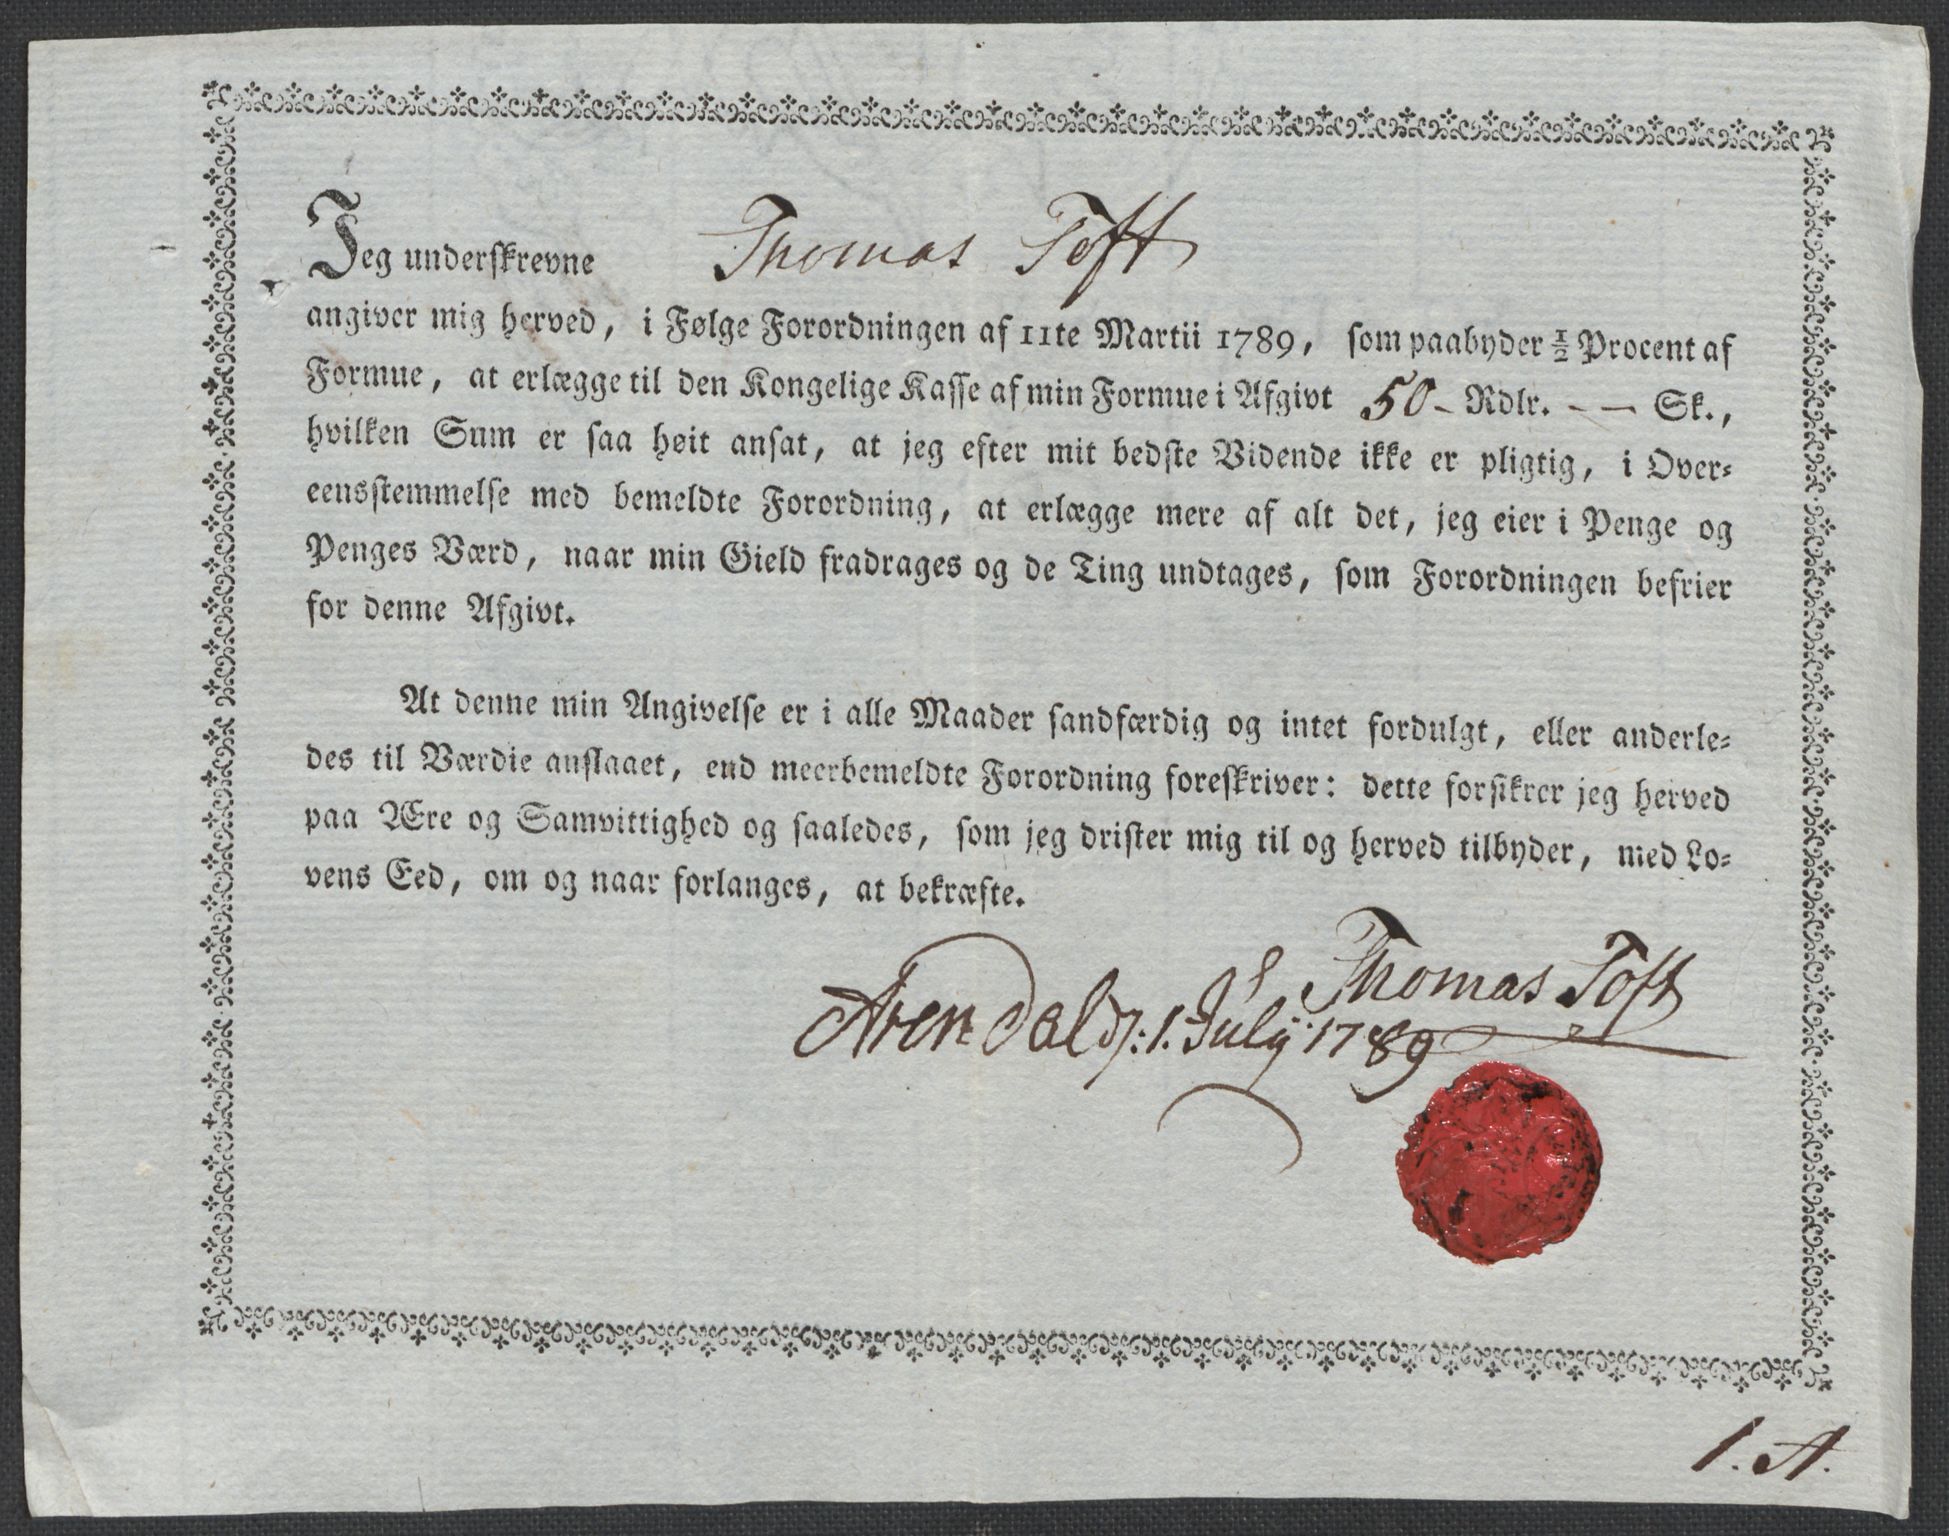 Jeg underskrevne Thomas Toft
angiver mig herved, i Følge Forordningen af 11te Martii 1789, som paabyder ½ Procent af
Formue, at erlægge til den Kongelige Kasse af min Formue i Afgivt 50 - Rdlr. - - Sk.,
hvilken Sum er saa høit ansat, at jeg efter mit bedste Vidende ikke er pligtig, i Over-
eensstemmelse med bemeldte Forordning, at erlægge mere af alt det, jeg eier i Penge og
Penges Værd, naar min Gield fradrages og de Ting undtages, som Forordningen befrier
for denne Afgivt.
At denne min Angivelse er i alle Maader sandfærdig og intet fordulgt, eller anderle-
des til Værdie anslaaet, end meerbemeldte Forordning foreskriver: dette forsikrer jeg herved
paa Ære og Samvittighed og saaledes, som jeg drister mig til og herved tilbyder, med Lo-
vens Eed, om og naar forlanges, at bekræfte.
Thomas Toft
Arendal d: 1. July 1789
1. A.